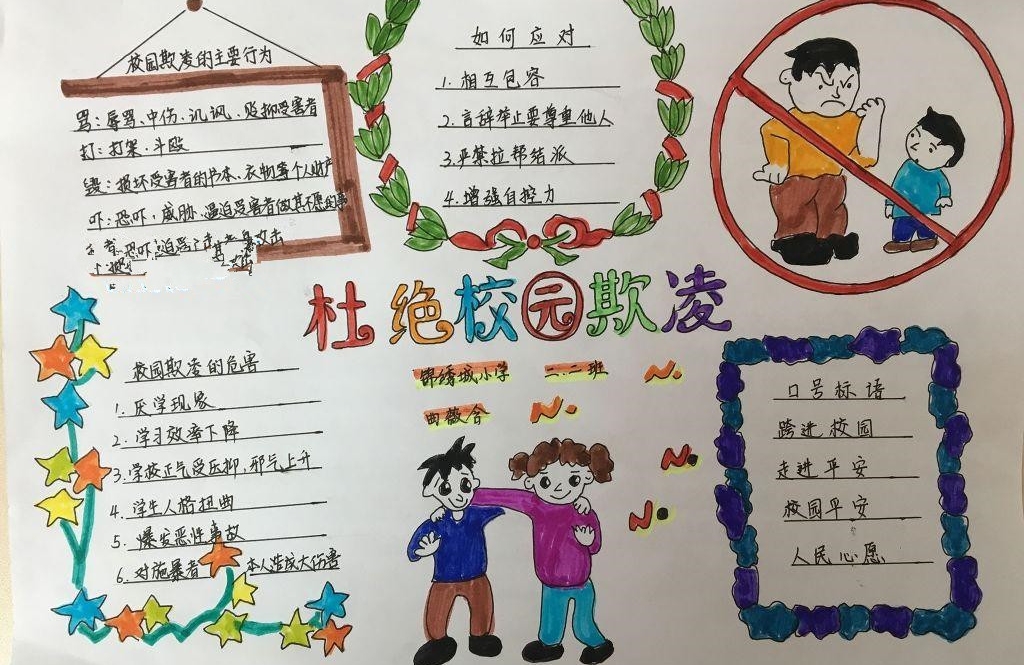 校园欺凌的主要行为
骂：辱骂、中伤、讥讽、贬抑受害者
打：打架、斗殴
毁：损坏受害者的书本、衣物等个人财产
吓：恐吓、威胁、逼迫受害者做其不愿的事
如何应对
1.相互包容
2.言辞举止要尊重他人
3.严禁拉帮结派
4.增强自控力
杜绝校园欺凌
锦绣城小学 二.二班
校园欺凌的危害
1.厌学现象
2.学习效率下降
3.学校正气受压抑，邪气上升
4.学生人格扭曲
5.爆发恶性事故
6.对施暴者 本人造成大伤害
口号标语
跨进校园
走进平安
校园平安
人民心愿